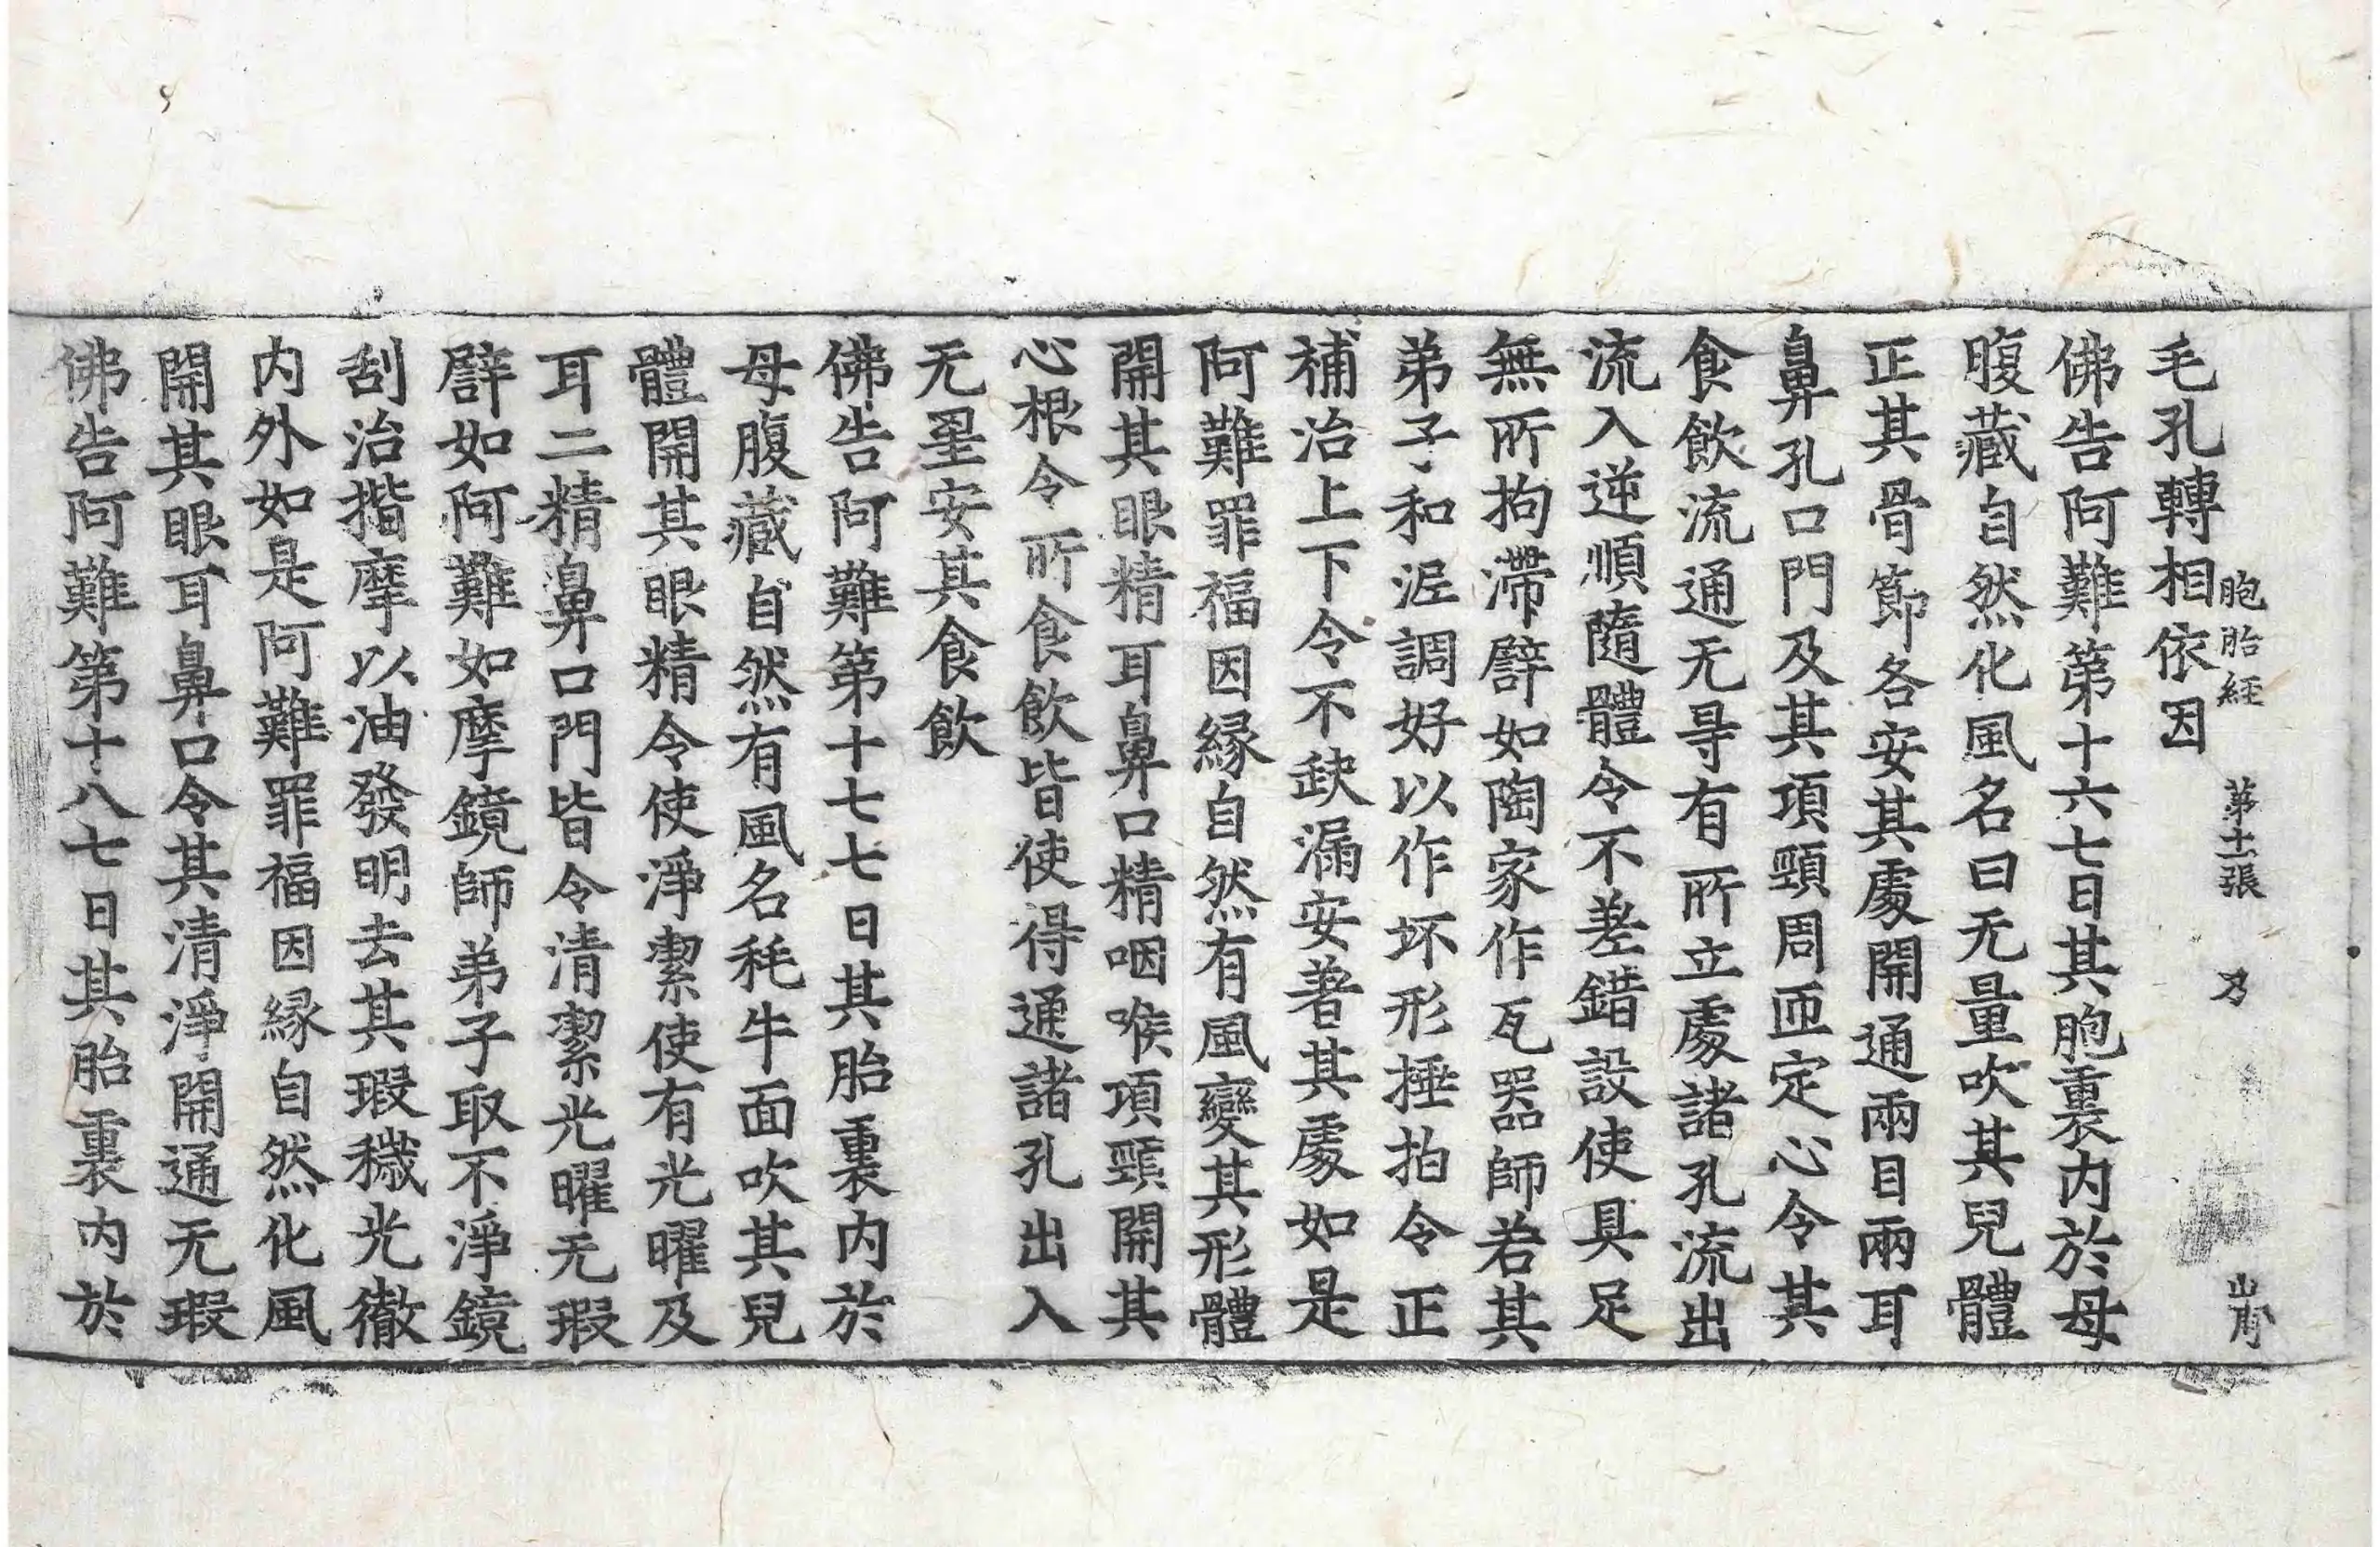 胞胎経　第十一張　乃
毛孔轉相依因
佛告阿難第十六七日其胞裏内於母
腹藏自然化風名曰无量吹其兒體
正其骨節各安其處開通兩目兩耳
鼻孔口門及其項頸周匝定心令其
食飲流通无㝵有所立處諸孔流出
流入逆順隨體令不差錯設使具足
無所拘滯譬如陶家作瓦器師若其
弟子和泥調好以作坏形捶拍令正
補治上下令不缺漏安著其處如是
阿難罪福因縁自然有風變其形體
開其眼精耳鼻口精咽喉項頸開其
心根令所食飲皆使得通諸孔出入
无罣安其食飲
佛告阿難第十七七日其胎裏内於
母腹藏自然有風名耗牛面吹其兒
體開其眼精令使淨潔使有光曜及
耳二精鼻口門皆令清潔光曜无瑕
譬如阿難如摩鏡師弟子取不淨鏡
刮治揩摩以油發明去其瑕穢光徹
内外如是阿難罪福因縁自然化風
開其眼耳鼻口令其清淨開通无瑕
佛告阿難第十八七日其胎裏内於